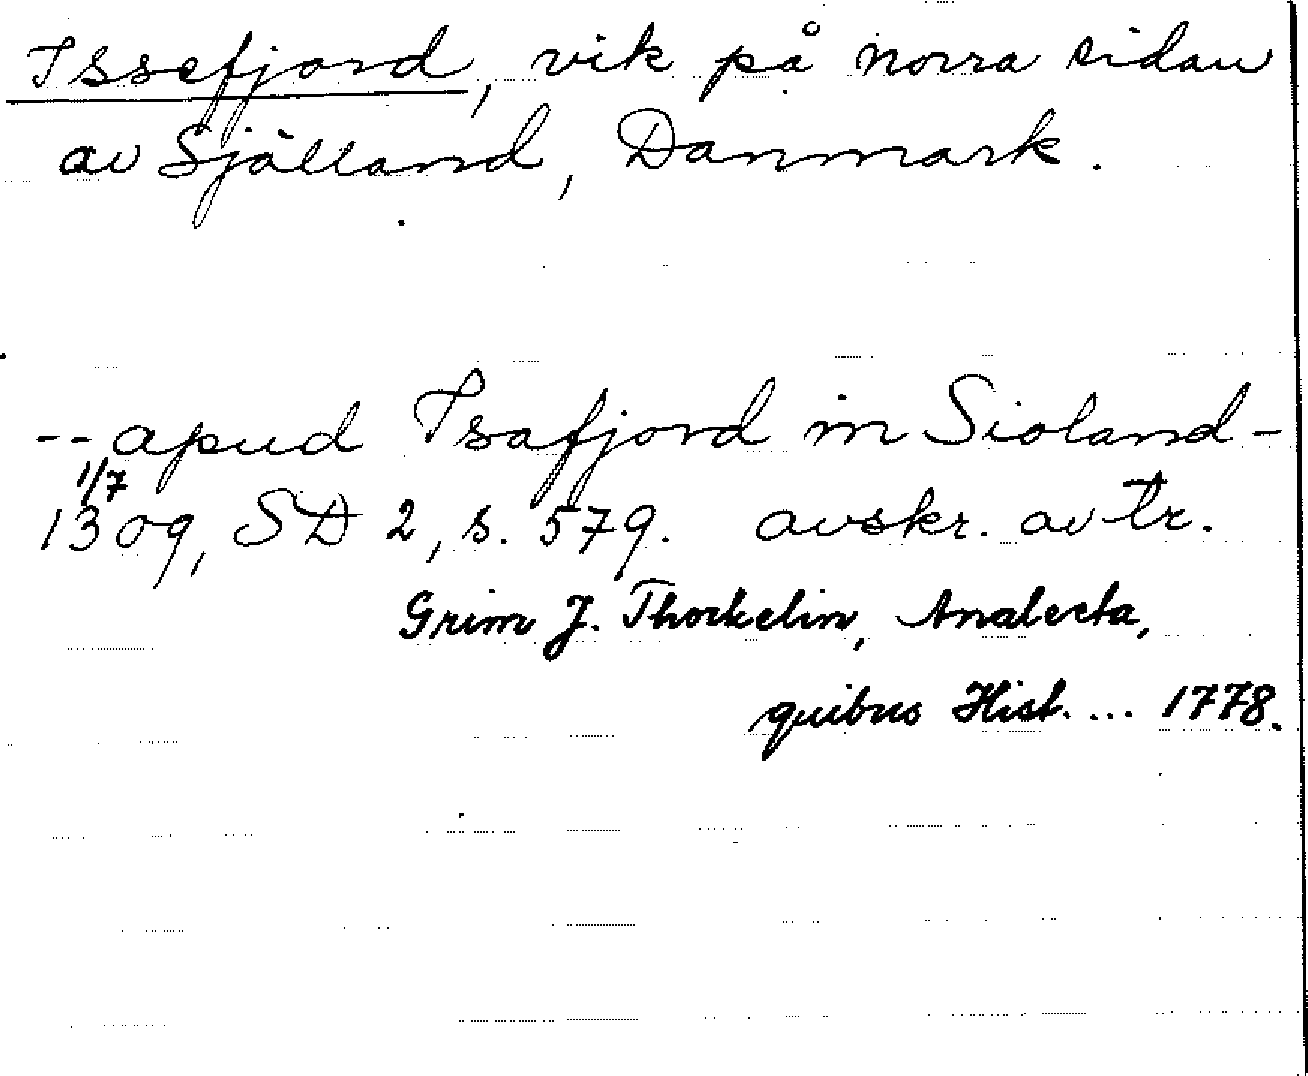 Issefjord, vik på norra sidan
av Själland, Danmark.
-- apud Isafjord in Sioland -
1/7
1309, SD 2, s. 579. avskr. av tr.
Grim J. Thorkelin, Analecta,
quibus Hist. ... 1778.